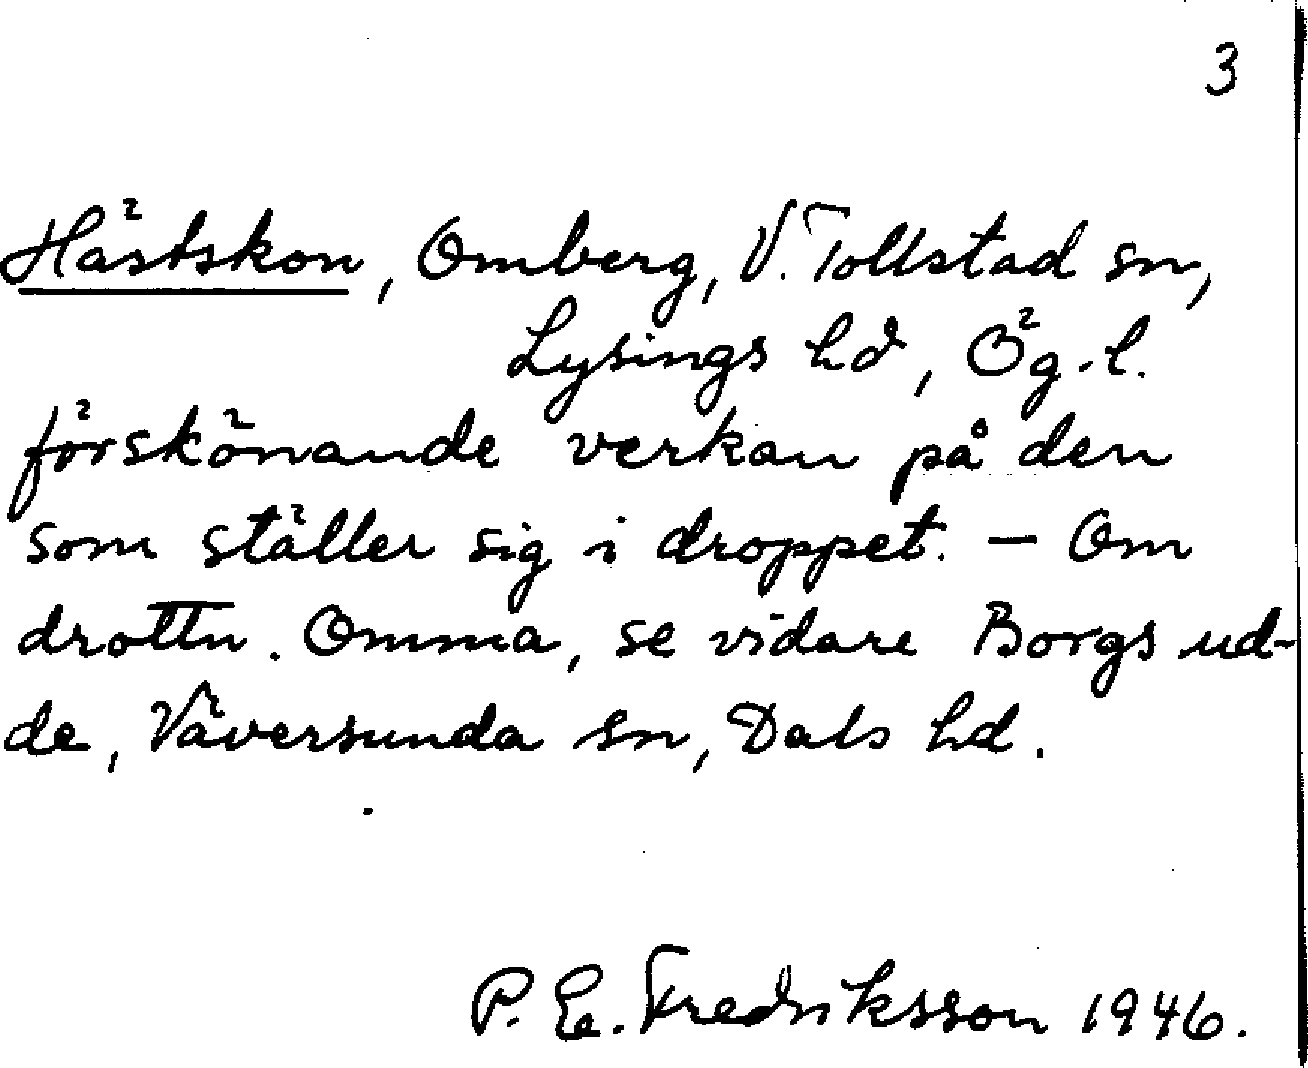 3
Hästskon, Omberg, V. Tollstad sn,
Lysings hd, Ög.l.
förskönande verkan på den
som ställer sig i droppet. – Om
drottn. Omma, se vidare Borgs ud-
de, Väversunda sn, Dals hd.
P. E. Fredriksson 1946.